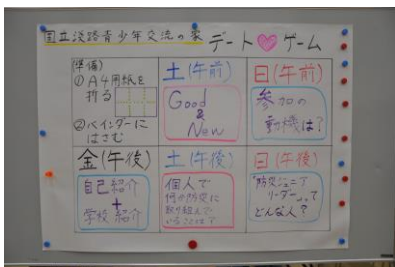 国立淡路青少年交流の家
デート♡ゲーム
(準備)
①A4用紙を
折る
②バインダーに
はさむ
土(午前)
Good
&
New
日(午前)
参加の
動機は?
金(午後)
自己紹介
+
学校紹介
土(午後)
個人で
何か防災に
取り組んで
いることは?
日(午後)
"防災ジュニア
リーダー"って
どんな人?